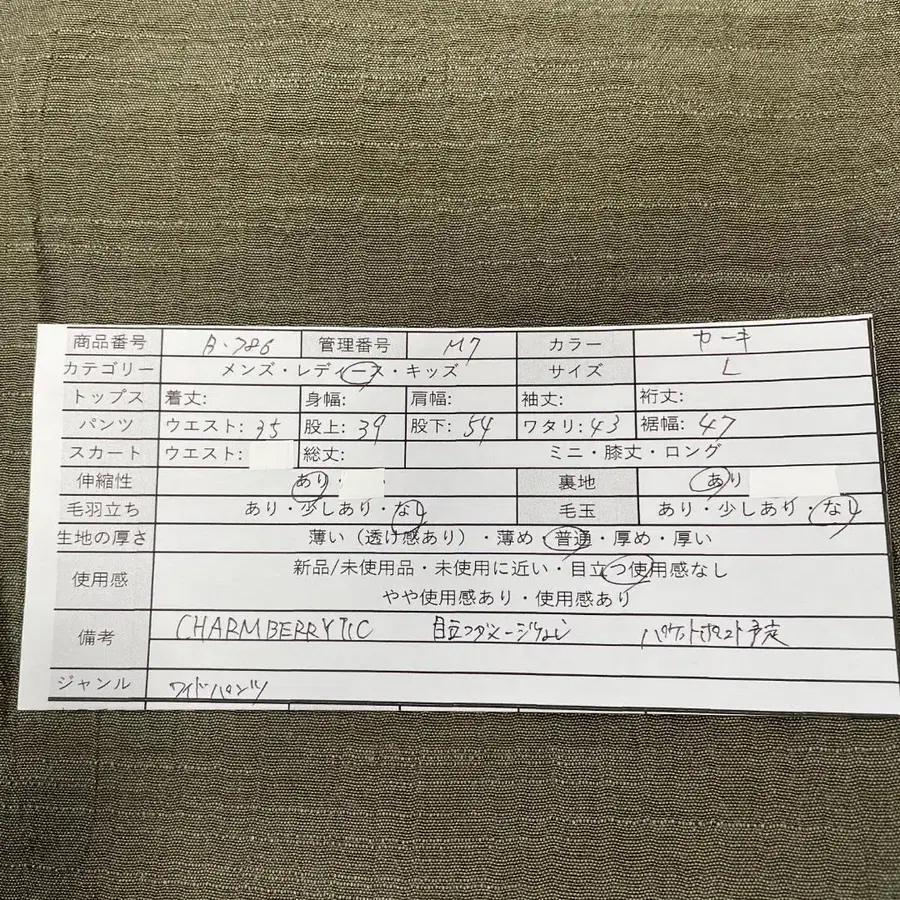 商品番号 B-786 管理番号 M7 カラー カーキ
カテゴリー メンズ・レディース・キッズ サイズ L
トップス 着丈: 身幅: 肩幅: 袖丈: 裄丈:
パンツ ウエスト: 35 股上: 39 股下: 54 ワタリ: 43 裾幅: 47
スカート ウエスト: 総丈: ミニ・膝丈・ロング
伸縮性 あり・ 裏地 あり
毛羽立ち あり・少しあり・なし 毛玉 あり・少しあり・なし
生地の厚さ 薄い（透け感あり）・薄め・普通・厚め・厚い
使用感 新品/未使用品・未使用に近い・目立つ使用感なし
やや使用感あり・使用感あり
備考 CHARMBERRYTIC 目立つダメージなし パケットポスト予定
ジャンル ワイドパンツ